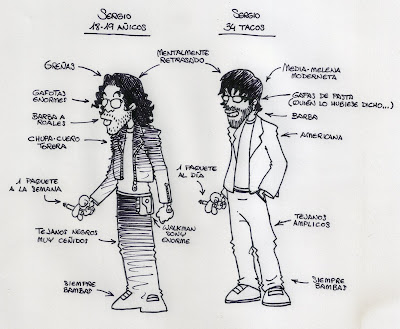 SERGIO
18-19 AÑICOS
SERGIO
34 TACOS
GREÑAS
MENTALMENTE
RETRASADO
MEDIA-MELENA
MODERNETA
GAFOTAS
ENORMES
GAFAS DE PASTA
(QUIEN LO HUBIESE DICHO...)
BARBA A
ROALES
BARBA
CHUPA-CUERO
TORERA
AMERICANA
1 PAQUETE
A LA SEMANA
1 PAQUETE
AL DÍA
TEJANOS NEGROS
MUY CEÑIDOS
WALKMAN
SONY
ENORME
TEJANOS
AMPLICOS
SIEMPRE
BAMBAS
SIEMPRE
BAMBAS